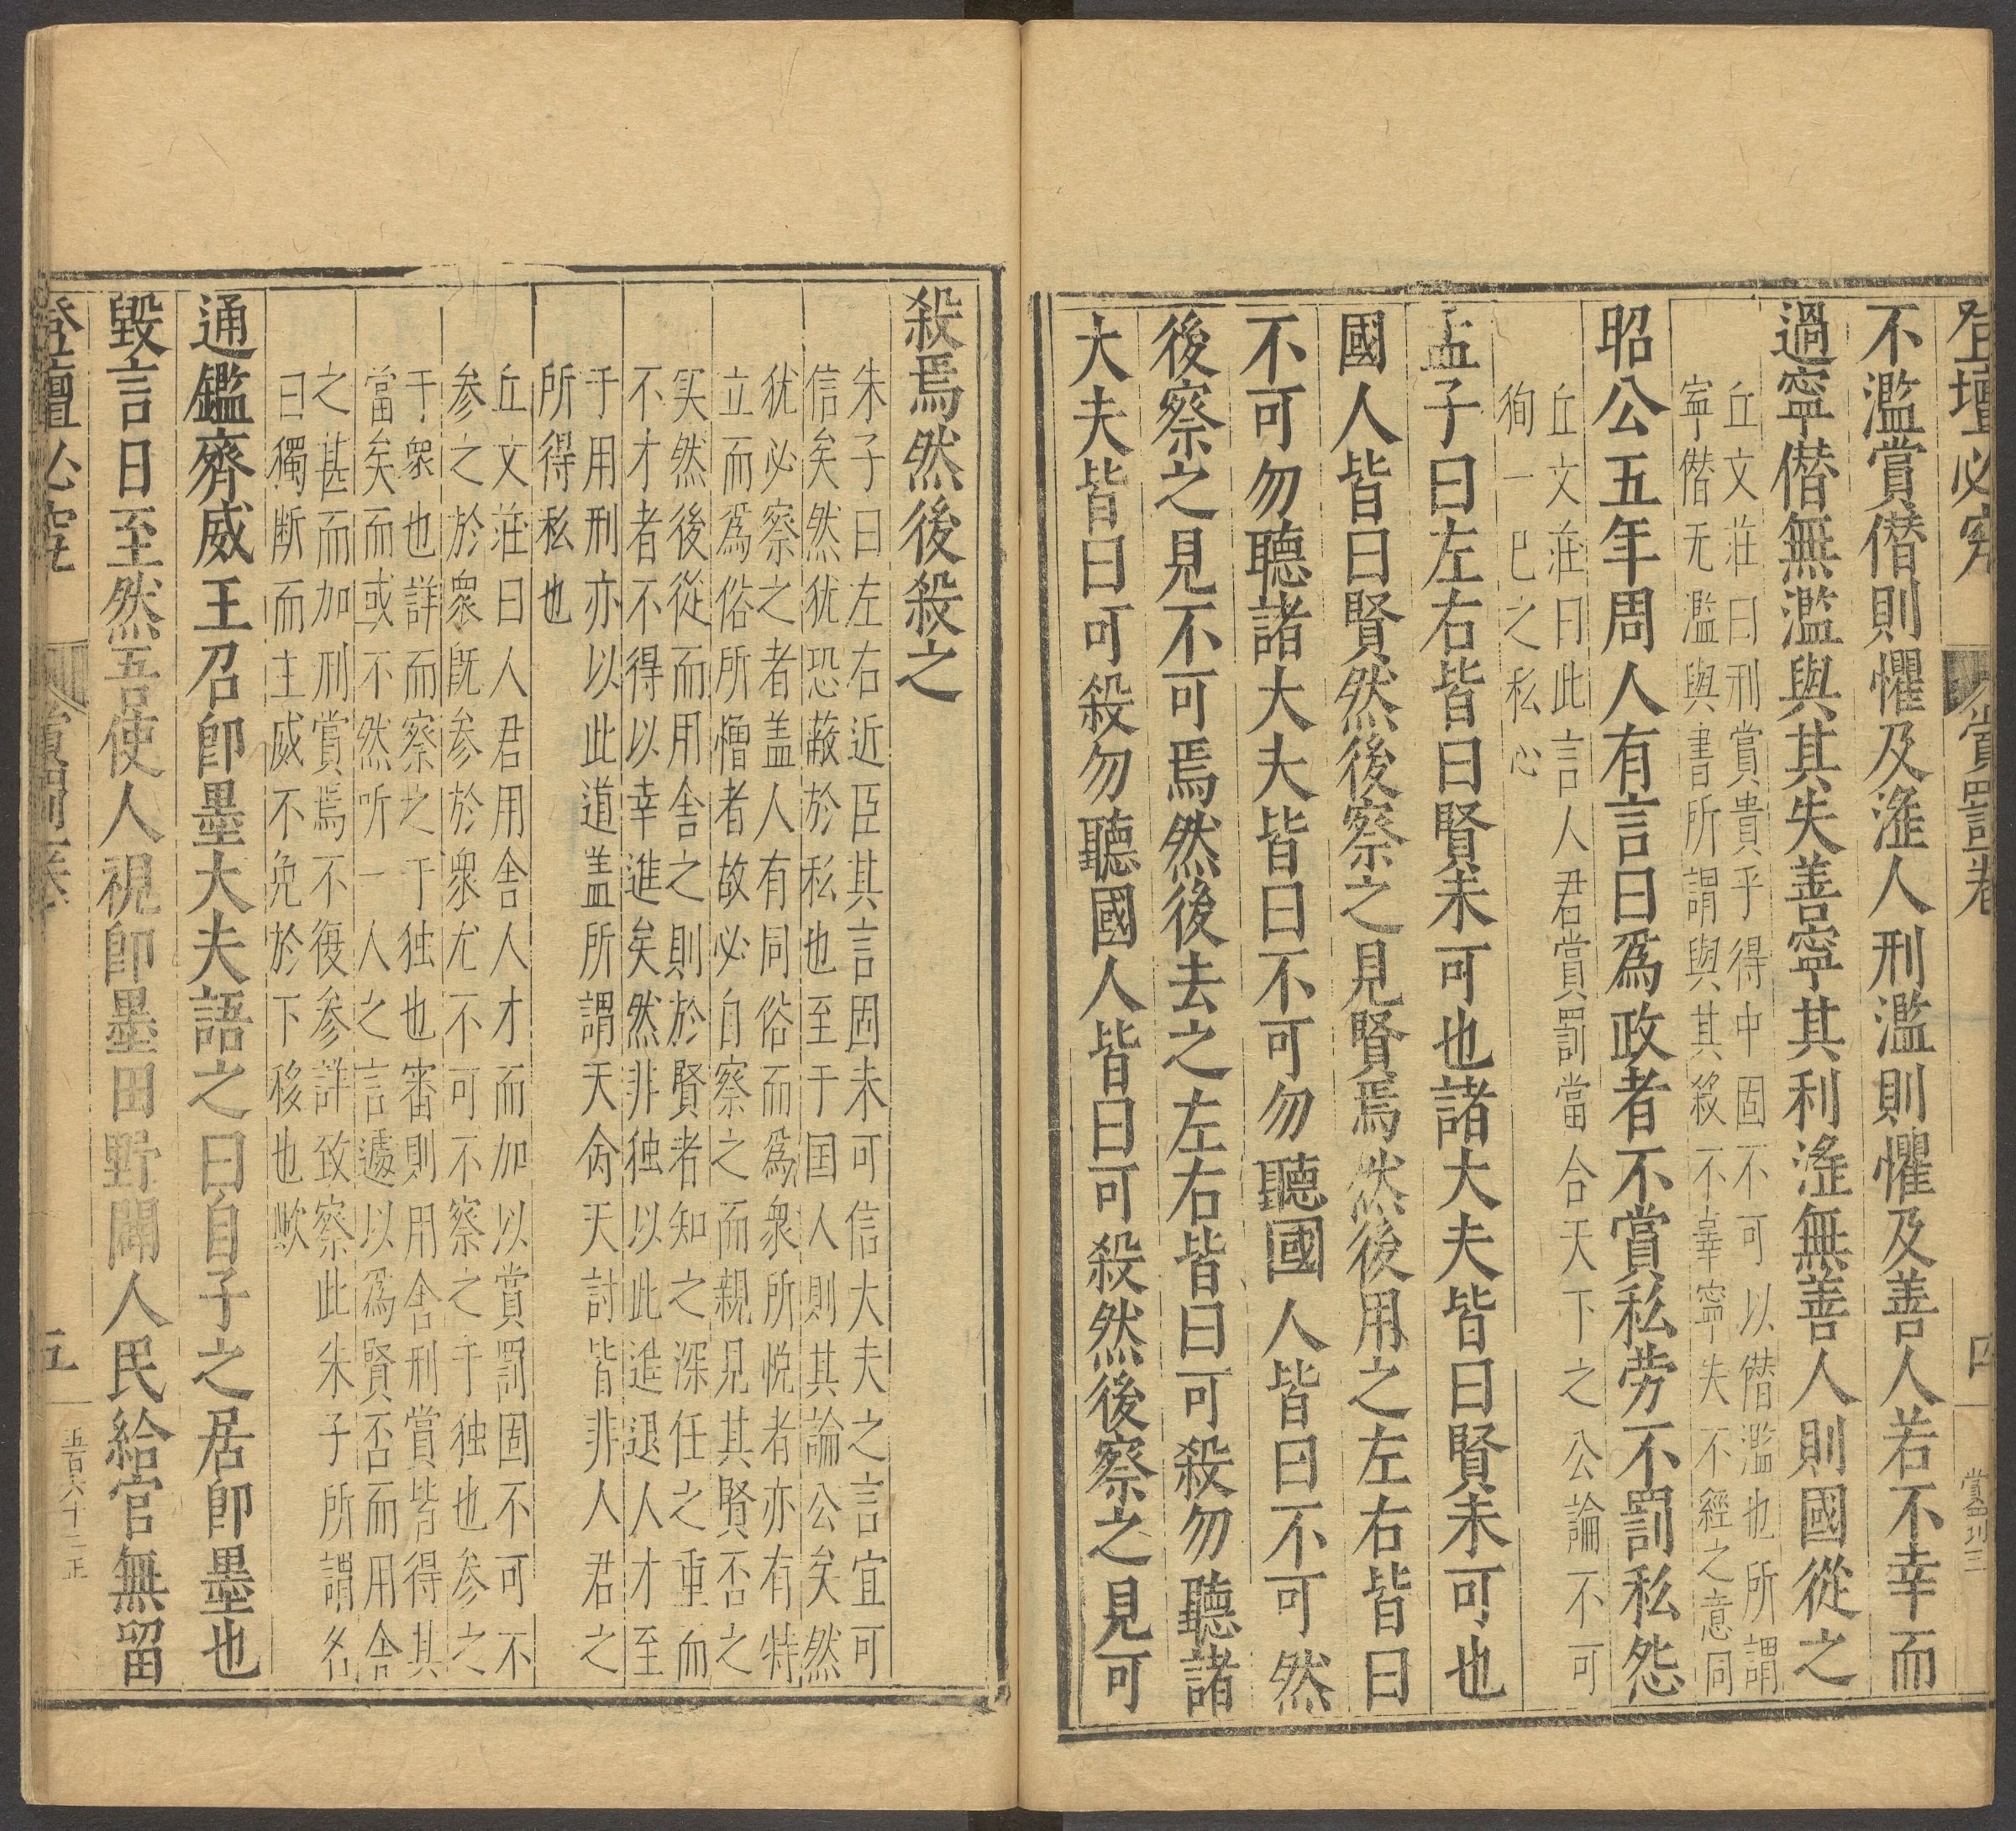 登壇必究 賞罰卷 四 賞罰三
不濫賞僣則懼及滛人刑濫則懼及善人若不幸而
過寧僣無濫與其失善寧其利滛無善人則國從之
丘文莊曰刑賞貴乎得中固不可以僣濫也所謂
寧僣无濫與書所謂與其殺不辜寧失不經之意同
昭公五年周人有言曰爲政者不賞私劳不罰私怨
丘文莊曰此言人君賞罰當合天下之公論不可
狥一巳之私心
孟子曰左右皆曰賢未可也諸大夫皆曰賢未可也
國人皆曰賢然後察之見賢焉然後用之左右皆曰
不可勿聽諸大夫皆曰不可勿聽國人皆曰不可然
後察之見不可焉然後去之左右皆曰可殺勿聽諸
大夫皆曰可殺勿聽國人皆曰可殺然後察之見可
殺焉然後殺之
朱子曰左右近臣其言固未可信大夫之言宜可
信矣然犹恐蔽於私也至于国人則其論公矣然
犹必察之者盖人有同俗而爲衆所悅者亦有特
立而爲俗所憎者故必自察之而親見其賢否之
実然後從而用舎之則於賢者知之深任之重而
不才者不得以幸進矣然非独以此進退人才至
于用刑亦以此道盖所謂天命天討皆非人君之
所得私也
丘文莊曰人君用舎人才而加以賞罰固不可不
参之於衆既参於衆尤不可不察之于独也参之
于衆也詳而察之于独也審則用舎刑賞皆得其
當矣而或不然听一人之言遽以爲賢否而用舎
之甚而加刑賞焉不復参詳致察此朱子所謂名
曰獨断而主威不免於下移也歟
通鑑齊威王召卽墨大夫語之曰自子之居卽墨也
毀言日至然吾使人視卽墨田野闢人民給官無留
登壇必究 賞罰卷 五 五百六十二正